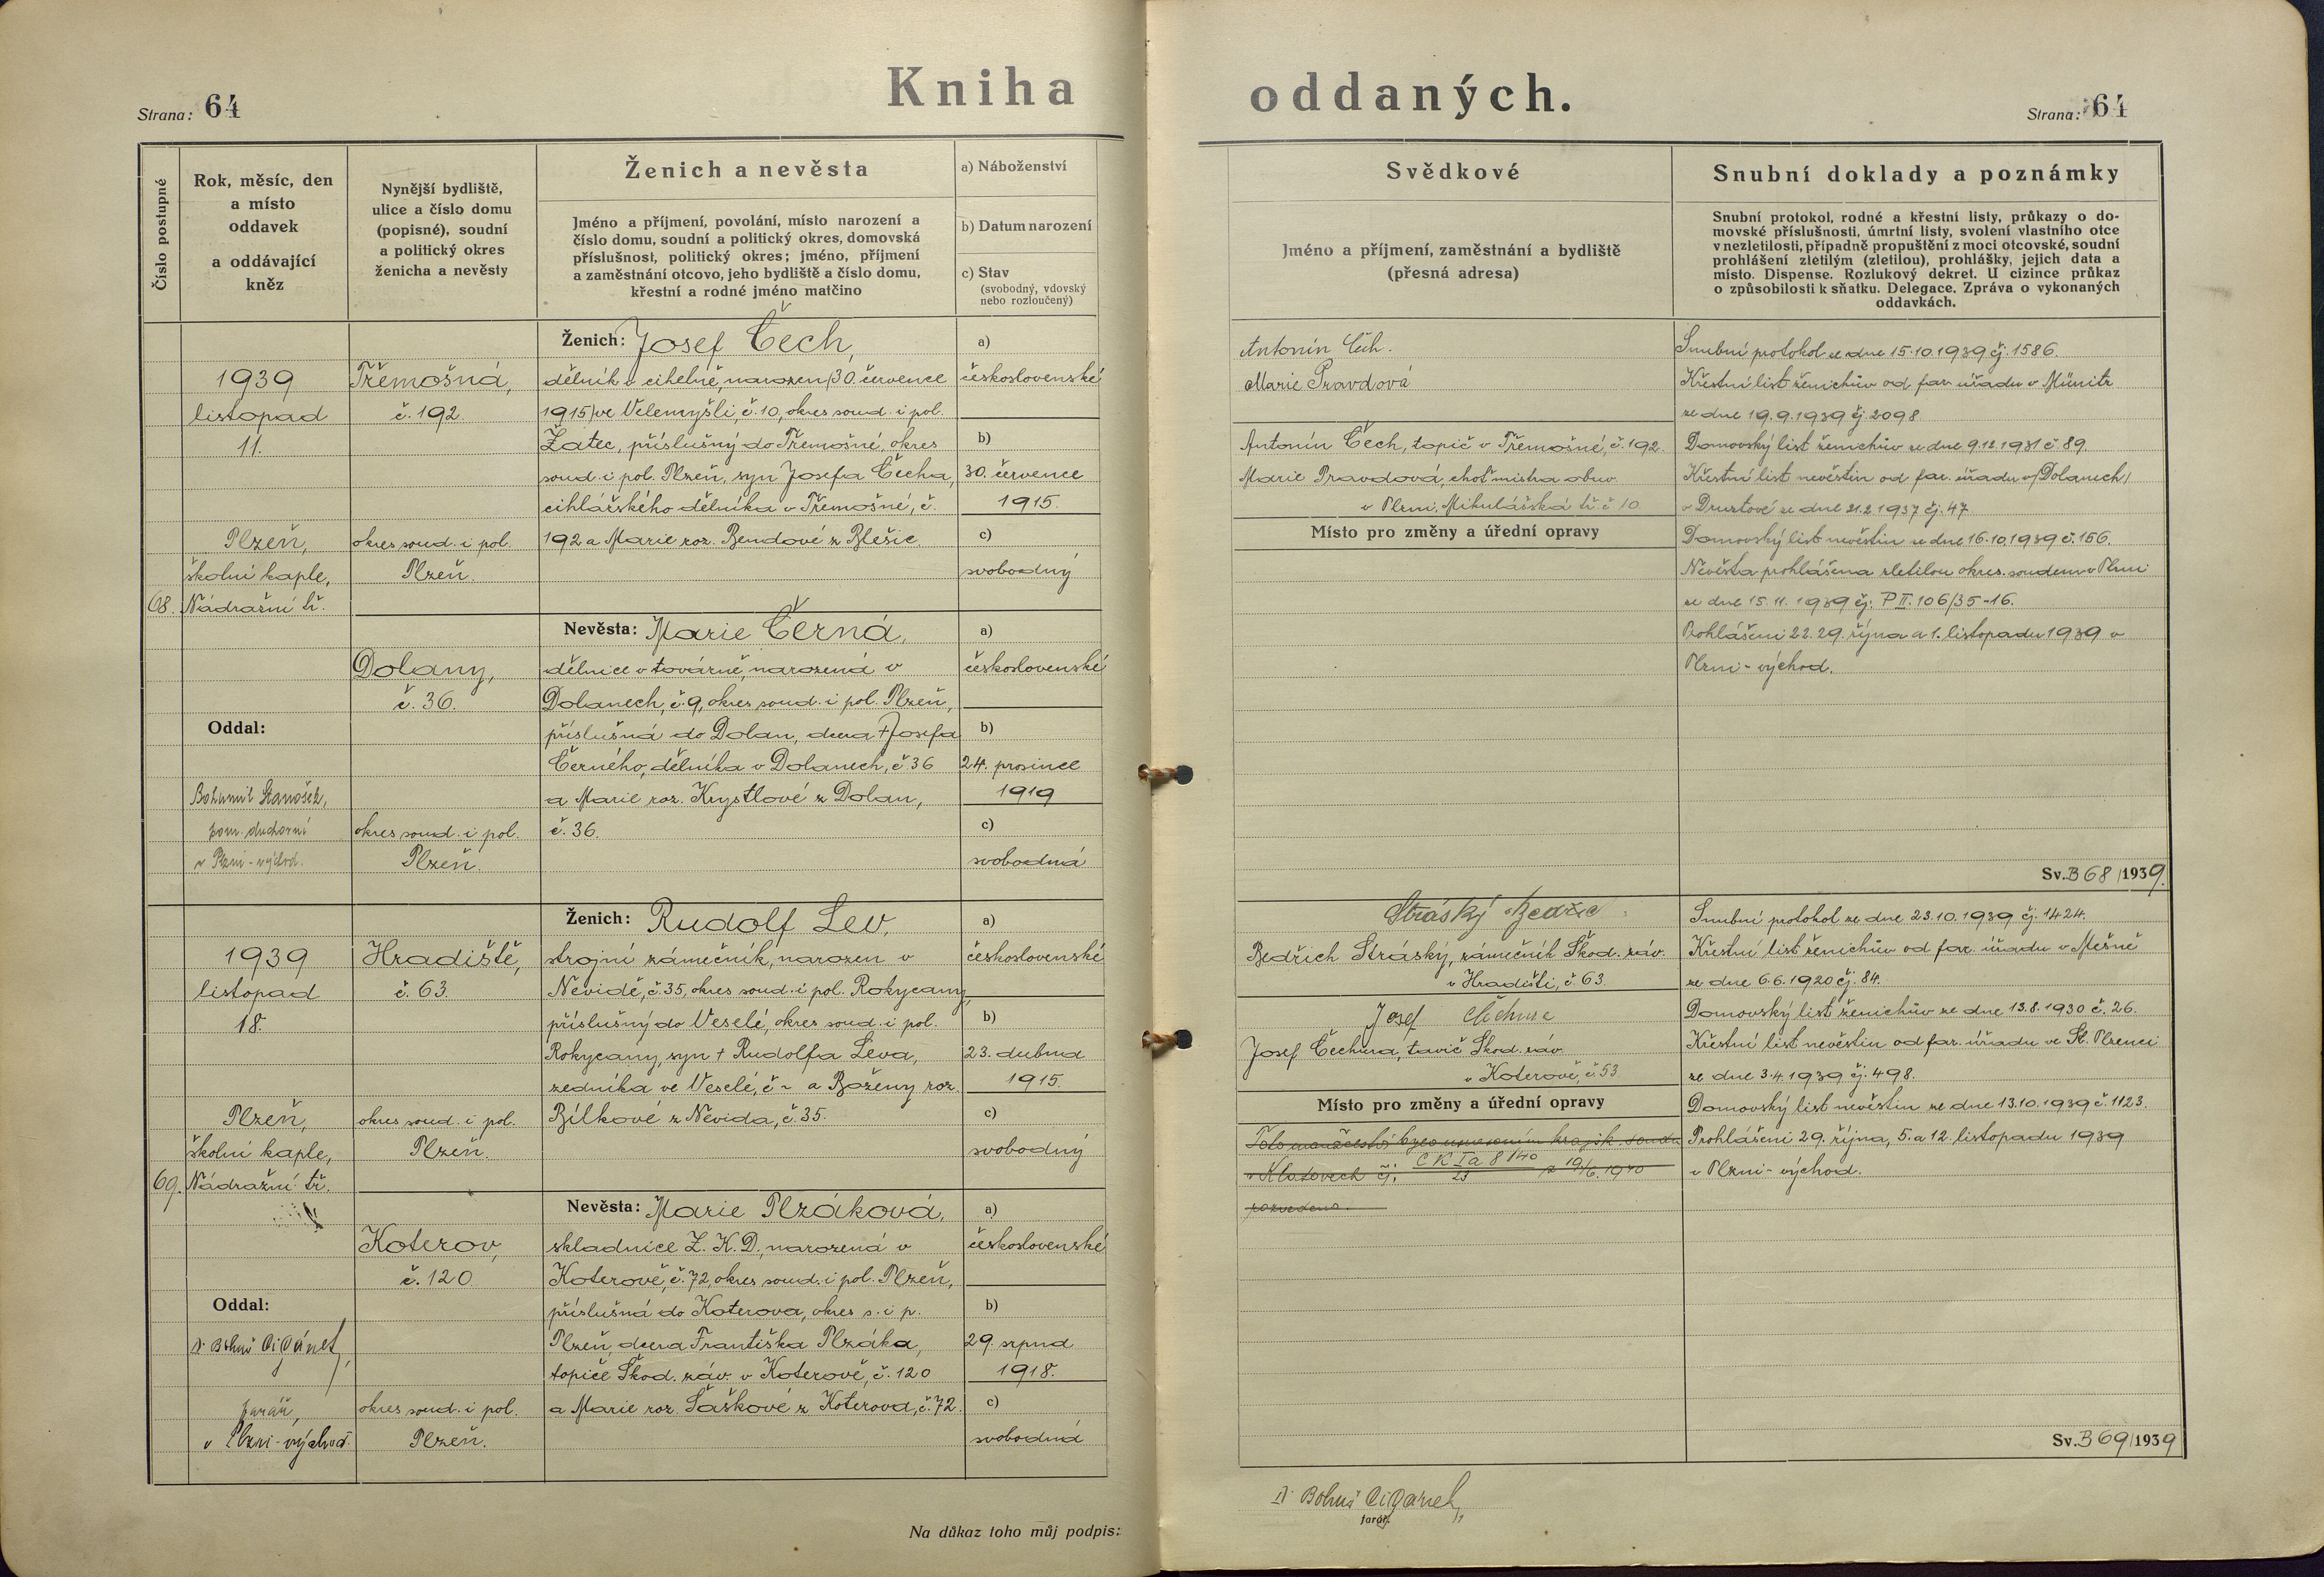 Kniha oddaných.
Strana: 64
Strana: 64
Číslo postupné
Rok, měsíc, den
a místo
oddavek
a oddávající
kněz
Nynější bydliště,
ulice a číslo domu
(popisné), soudní
a politický okres
ženicha a nevěsty
Ženich a nevěsta
Jméno a příjmení, povolání, místo narození a
číslo domu, soudní a politický okres, domovská
příslušnost, politický okres; jméno, příjmení
a zaměstnání otcovo, jeho bydliště a číslo domu,
křestní a rodné jméno matčino
a) Náboženství
b) Datum narození
c) Stav
(svobodný, vdovský
nebo rozloučený)
Svědkové
Jméno a příjmení, zaměstnání a bydliště
(přesná adresa)
Snubní doklady a poznámky
Snubní protokol, rodné a křestní listy, průkazy o do-
movské příslušnosti, úmrtní listy, svolení vlastního otce
v nezletilosti, případně propuštění z moci otcovské, soudní
prohlášení zletilým (zletilou), prohlášky, jejich data a
místo. Dispense. Rozlukový dekret. U cizince průkaz
o způsobilosti k sňatku. Delegace. Zpráva o vykonaných
oddavkách.
68.
1939
listopad
11.
Plzeň,
školní kaple,
Nádražní tř.
Oddal:
Bohumil Stanošek,
pom. duchovní
v Plzni-východ.
Třemošná,
č. 192.
okres soud. i pol.
Plzeň.
Dolany,
č. 36.
okres soud. i pol.
Plzeň.
Ženich: Josef Čech,
dělník v cihelně, narozen /30. července
1915/ ve Velemyšli, č. 10, okres soud. i pol.
Žatec, příslušný do Třemošné, okres
soud. i pol. Plzeň, syn Josefa Čecha,
cihlářského dělníka v Třemošné, č.
192 a Marie roz. Bendové z Blešic.
Nevěsta: Marie Černá,
dělnice v továrně, narozená v
Dolanech, č. 9, okres soud. i pol. Plzeň,
příslušná do Dolan, dcera † Josefa
Černého, dělníka v Dolanech, č. 36
a Marie roz. Krystlové z Dolan,
č. 36.
a)
československé
b)
30. července
1915.
c)
svobodný
a)
československé
b)
24. prosince
1919
c)
svobodná
Antonín Čech.
Marie Pravdová
Antonín Čech, topič v Třemošné, č. 192.
Marie Pravdová, choť mistra obuv.
v Plzni, Mikulášská tř. č. 10
Místo pro změny a úřední opravy
Snubní protokol ze dne 15.10.1939 čj. 1586.
Křestní list ženichův od far. úřadu v Münitz
ze dne 19.9.1939 čj. 2098
Domovský list ženichův ze dne 9.12.1931 č. 89.
Křestní list nevěstin od far. úřadu v /Dolanech/
v Druztové ze dne 21.2.1937 čj. 47
Domovský list nevěstin ze dne 16.10.1939 č. 156.
Nevěsta prohlášena zletilou okres. soudem v Plzni
ze dne 15.11.1939 čj. P II. 106/35-16.
Prohlášení 22. 29. října a 1. listopadu 1939 v
Plzni-východ.
Sv. B 68/1939.
69.
1939
listopad
18.
Plzeň,
školní kaple,
Nádražní tř.
Oddal:
Dr Bohuš Cigánek,
farář,
v Plzni-východ
Hradiště,
č. 63.
okres soud. i pol.
Plzeň.
Koterov,
č. 120.
okres soud. i pol.
Plzeň.
Ženich: Rudolf Lev,
strojní zámečník, narozen v
Nevidě, č. 35, okres soud. i pol. Rokycany,
příslušný do Veselé, okres soud. i pol.
Rokycany, syn † Rudolfa Leva,
zedníka ve Veselé, č ~ a Boženy roz.
Bílkové z Nevida, č. 35.
Nevěsta: Marie Plzáková,
skladnice Z. K. D., narozená v
Koterově, č. 72, okres soud. i pol. Plzeň,
příslušná do Koterova, okres s. i p.
Plzeň, dcera Františka Plzáka,
topiče Škod. záv. v Koterově, č. 120
a Marie roz. Šaškové z Koterova, č. 72.
a)
československé
b)
23. dubna
1915.
c)
svobodný
a)
československé
b)
29. srpna
1918.
c)
svobodná
Stráský Bedřic
Bedřich Stráský, zámečník Škod. záv.
v Hradišti, č. 63.
Josef Čechura
Josef Čechura, tavič Škod. záv.
v Koterově, č. 53.
Místo pro změny a úřední opravy
Toto manželství bylo usnesením krajsk. soudu
v Klatovech čj. C K Ia 8/40 23 z 19/6. 1940
rozvedeno.
Snubní protokol ze dne 23.10.1939 čj. 1424.
Křestní list ženichův od far. úřadu v Mešně
ze dne 6.6.1920 čj. 84.
Domovský list ženichův ze dne 13.8.1930 č. 26.
Křestní list nevěstin od far. úřadu ve St. Plzenci
ze dne 3.4.1939 čj. 498.
Domovský list nevěstin ze dne 13.10.1939 č. 1123.
Prohlášení 29. října, 5. a 12. listopadu 1939
v Plzni-východ.
Sv. B 69/1939
Na důkaz toho můj podpis:
Dr Bohuš Cigánek,
farář.